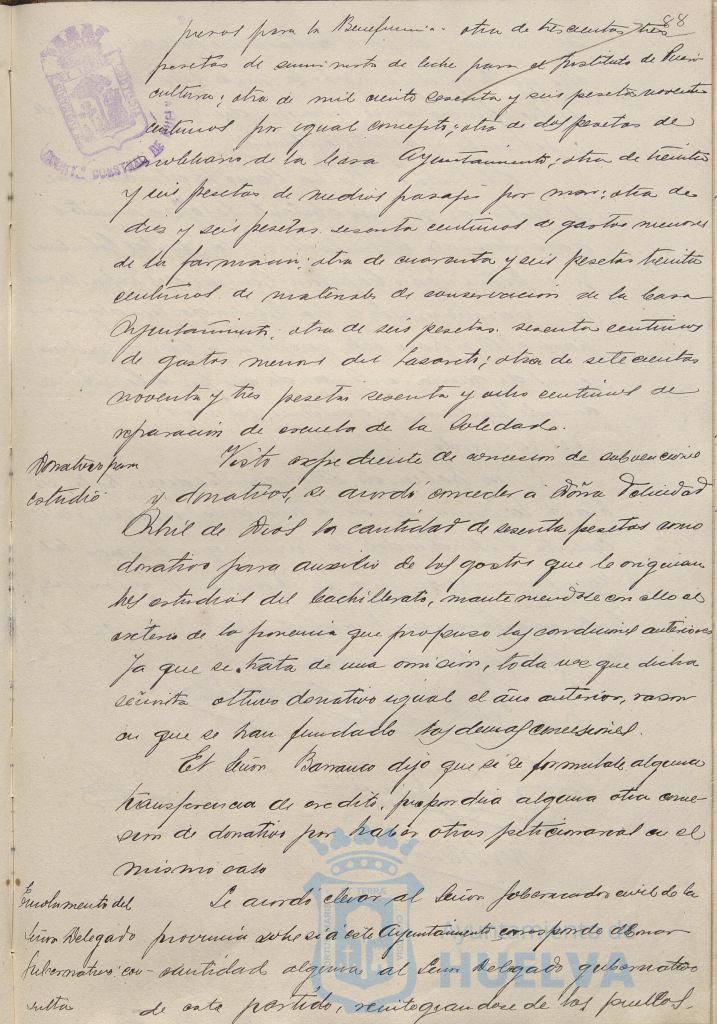 88
presos para la Beneficencia. otra de trescientas tres
pesetas de suministro de leche para el Instituto de Pueri
cultura; otra de mil ciento sesenta y seis pesetas noventa
centimos por igual concepto; otra de dos pesetas de
mobiliario de la Casa Ayuntamiento; otra de treinta
y seis pesetas de medios pasajes por mar; otra de
dies y seis pesetas sesenta centimos de gastos menores
de la farmacia; otra de cuarenta y seis pesetas treinta
centimos de materiales de conservacion de la Casa
Ayuntamiento; otra de seis pesetas sesenta centimos
de gastos menores del Lasareto; otra de setecientas
noventa y tres pesetas sesenta y ocho centimos de
reparacion de escuela de la Soledad.
Donativo para
estudio.
Visto expediente de concesion de subvenciones
y donativos, se acordó conceder a Doña Felicidad
de Diós la cantidad de sesenta pesetas como
donativo para auxilio de los gastos que le originan
los estudios del Bachillerato, manteniendose con ello el
criterio de la ponencia que propuso las condiciones anteriores
ya que se trata de una omision, toda ves que dicha
señorita obtuvo donativo igual el año anterior, rason
en que se han fundado las demas concesiones.
El Señor Barranco dijo que si se formulase alguna
transferencia de credito, propondria alguna otra conce-
sion de donativo por haber otras peticionarias en el
mismo caso
Emolumento del
Señor Delegado
Gubernativo: con-
sulta
Se acordó elevar al Señor Gobernador civil de la
provincia sobre si a este Ayuntamiento corresponde abonar
cantidad alguna al Señor Delegado gubernativo
de este partido, reintegrandose de los pueblos.
Ayuntamiento de
HUELVA